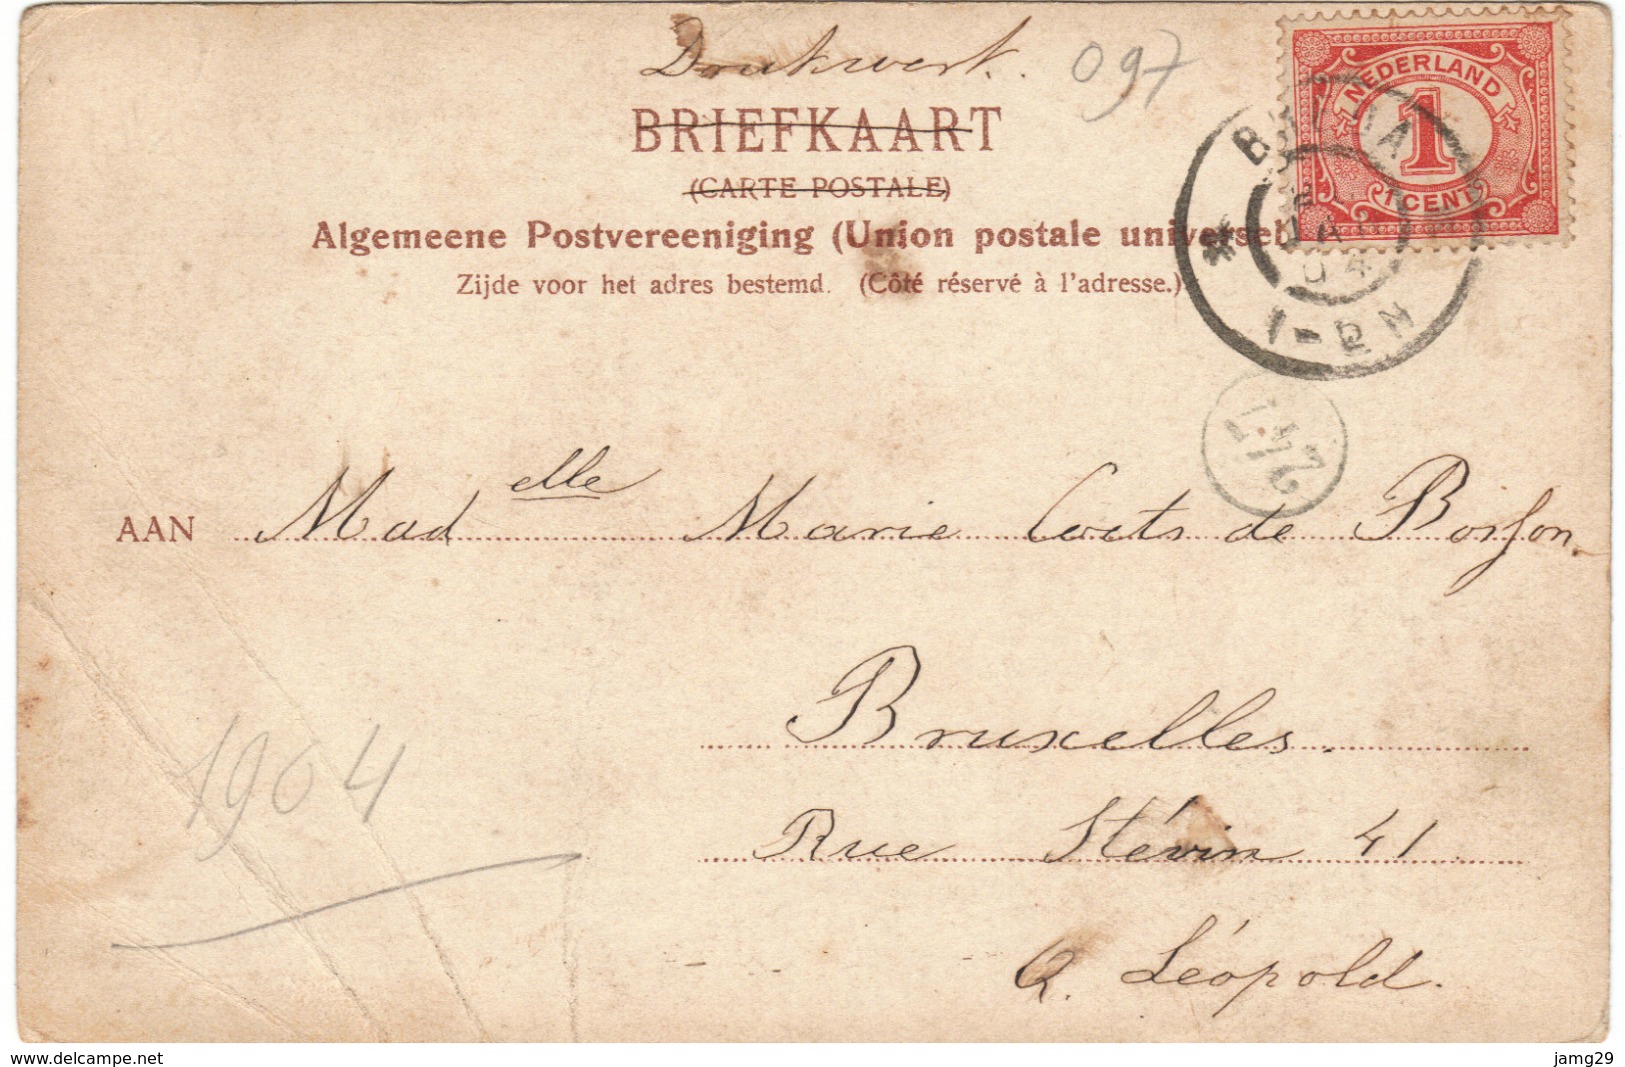 Drukwerk. 097
BRIEFKAART
(CARTE POSTALE)
Algemeene Postvereeniging (Union postale universel
Zijde voor het adres bestemd. (Côté réservé à l'adresse.)
NEDERLAND
1
1 CENT
1-2 N
AAN Mad elle Marie Coets de Bosson.
Bruxelles.
Rue Stévin 41
Q. Léopold.
1904
www.delcampe.net
jamg29